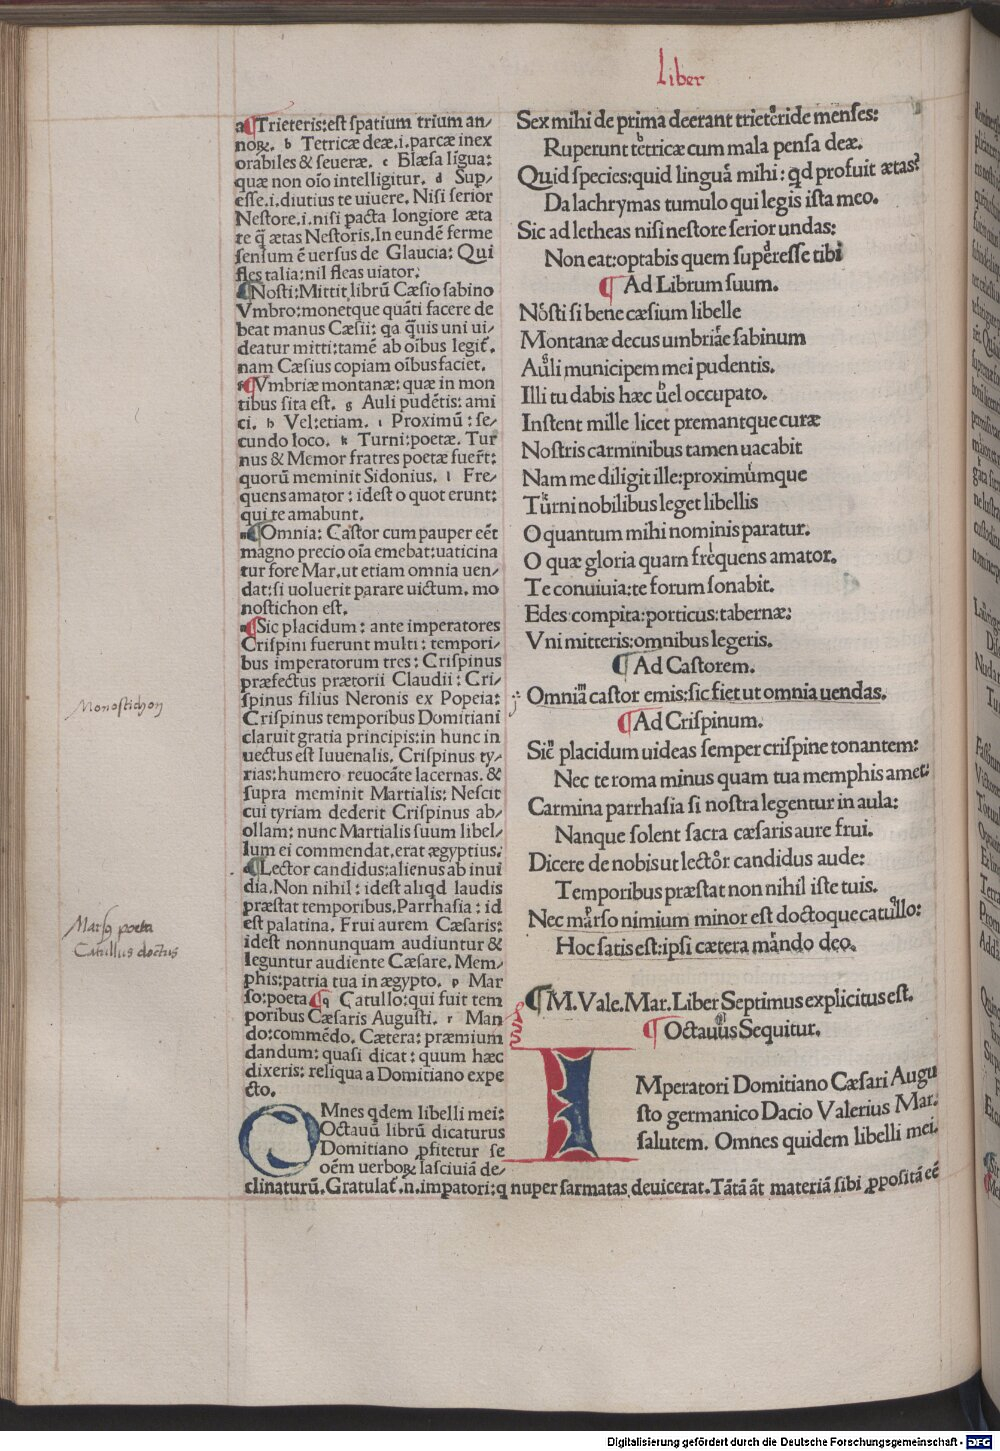 Liber
a ¶Trieteris:est spatium trium an/
noꝝ. b Tetricæ deæ.i.parcæ inex
orabiles & seueræ. c Blæsa lígua:
quæ non oīo intelligitur. d Sup/
esse.i.diutius te uiuere. Nisi serior
Nestore.i.nisi pacta longiore æta
te q̄ ætas Nestoris.In eundē ferme
sensum ē uersus de Glaucia: Qui
fles talia:nil fleas uiator.
¶Nosti:Mittit librū Cæsio sabino
Vmbro:monetque quāti facere de
beat manus Cæsii: qa q̄uis uni ui/
deatur mitti:tamē ab oībus legit̄.
nam Cæsius copiam oībus faciet.
f ¶Vmbriæ montanæ: quæ in mon
tibus sita est. g Auli pudētis: ami
ci. h Vel:etiam. i Proximū : se/
cundo loco. k Turni:poetæ. Tur
nus & Memor fratres poetæ fuer̄t:
quorū meminit Sidonius. l Fre/
quens amator : idest o quot erunt:
qui te amabunt.
m ¶Omnia: Castor cum pauper eēt
magno precio oīa emebat:uaticina
tur fore Mar.ut etiam omnia uen/
dat:si uoluerit parare uictum. mo
nostichon est.
n ¶Sic placidum : ante imperatores
Crispini fuerunt multi : tempori/
bus imperatorum tres : Crispinus
præfectus prætorii Claudii : Cri/
spinus filius Neronis ex Popeia:
Crispinus temporibus Domitiani
claruit gratia principis:in hunc in
uectus est Iuuenalis. Crispinus ty/
rias:humero reuocāte lacernas. &
supra meminit Martialis: Nescit
cui tyriam dederit Crispinus ab/
ollam: nunc Martialis suum libel/
lum ei commendat.erat ægyptius.
¶Lector candidus:alienus ab inui
dia.Non nihil : idest aliqd laudis
præstat temporibus.Parrhasia : id
est palatina. Frui aurem Cæsaris:
idest nonnunquam audiuntur &
leguntur audiente Cæsare. Mem/
phis:patria tua in ægypto. p Mar
so:poeta ¶q Catullo:qui fuit tem
poribus Cæsaris Augusti. r Man/
do:commēdo. Cætera: præmium
dandum: quasi dicat : quum hæc
dixeris: reliqua a Domitiano expe
cto.
OMnes qdem libelli mei:
Octauū librū dicaturus
Domitiano ꝓfitetur se
oēm uerboꝝ lasciuiā de/
clinaturū.Gratulat̄.n.impatori:q nuper sarmatas deuicerat.Tātā āt materiā sibi ꝓpositā eē
Monostichon
Marsꝯ poeta
Catullus doctus
Sex mihi de prima deerant trieteride menses:
Ruperunt tetricæ cum mala pensa deæ.
Quid species:quid linguā mihi : qd profuit ætas?
Da lachrymas tumulo qui legis ista meo.
Sic ad letheas nisi nestore serior undas:
Non eat:optabis quem superesse tibi
¶ Ad Librum suum.
Nosti si bene cæsium libelle
Montanæ decus umbriæ sabinum
Auli municipem mei pudentis.
Illi tu dabis hæc uel occupato.
Instent mille licet premantque curæ
Nostris carminibus tamen uacabit
Nam me diligit ille:proximumque
Turni nobilibus leget libellis
O quantum mihi nominis paratur.
O quæ gloria quam frequens amator.
Te conuiuia:te forum sonabit.
Edes compita:porticus:tabernæ:
Vni mitteris:omnibus legeris.
¶ Ad Castorem.
Omnia castor emis:sic fiet ut omnia uendas.
¶Ad Crispinum.
Sic placidum uideas semper crispine tonantem:
Nec te roma minus quam tua memphis amet:
Carmina parrhasia si nostra legentur in aula:
Nanque solent sacra cæsaris aure frui.
Dicere de nobis ut lector candidus aude:
Temporibus præstat non nihil iste tuis.
Nec marso nimium minor est doctoque catullo:
Hoc satis est:ipsi cætera mando deo.
¶M.Vale.Mar.Liber Septimus explicitus est.
¶ Octauus Sequitur.
IMperatori Domitiano Cæsari Augu
sto germanico Dacio Valerius Mar.
salutem. Omnes quidem libelli mei.
Digitalisierung gefördert durch die Deutsche Forschungsgemeinschaft - DFG